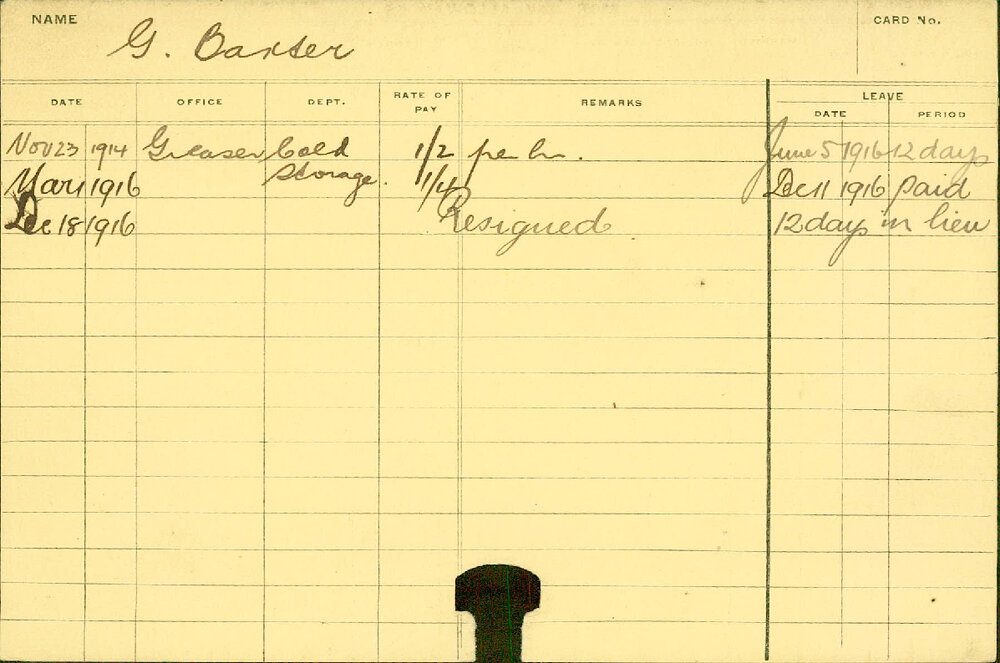 NAME
CARD No.
G. Baxter
DATE OFFICE DEPT. RATE OF PAY REMARKS LEAVE
DATE PERIOD
Nov 23 1914 Greaser Cold 1/2 per hr. June 5 1916 12 days
Mar 1 1916 Storage. 1/4 Dec 11 1916 paid
Dec 18 1916 Resigned 12 days in lieu